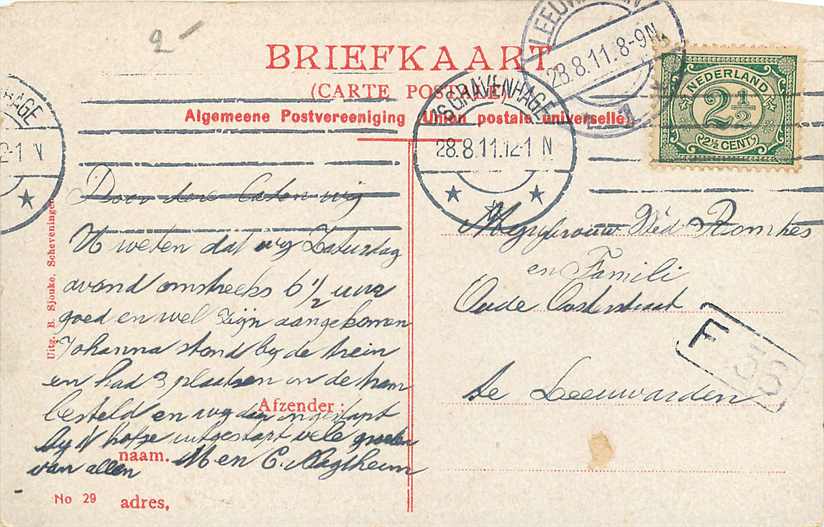 2
BRIEFKAART
(CARTE POSTALE)
Algemeene Postvereeniging Union postale universelle
LEEUWARDEN
28.8.11.8-9N.
'S GRAVENHAGE
28.8.11.12-1 N
HAGE
2-1 N
NEDERLAND
2½
2½ CENT
Door deze laten wij
U weten dat wij Zaturdag
avond omstreeks 6 1/2 uur
goed en wel zijn aangekomen
Johanna stond bij de trein
en had 3 plaatsen in de tram
besteld en wij daar ingestapt
bij 't hofje uitgestapt vele groeten
van allen M en C.
Mejufvrouw Wed Romkes
en Famili
Oude Oosterstraat
te Leeuwarden
F 36
Afzender:
naam.
adres,
No 29
Uitg. B. Sjouke, Scheveningen